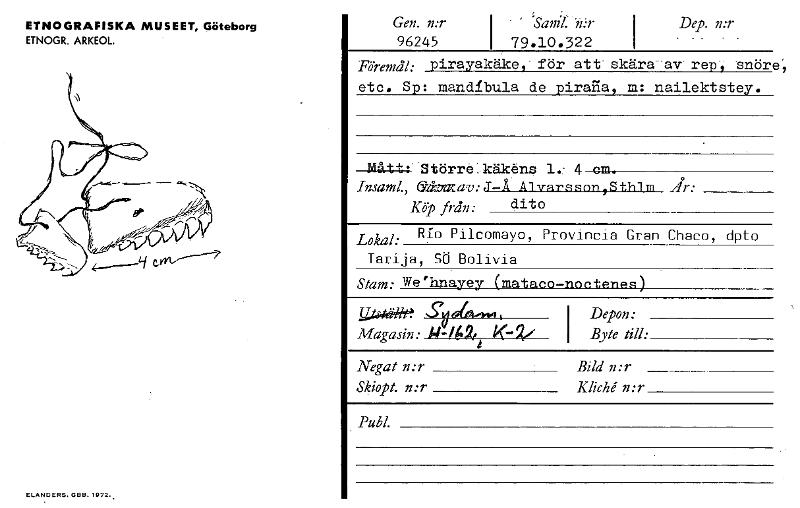 ETNOGRAFISKA MUSEET, Göteborg
ETNOGR. ARKEOL.
4 cm
ELANDERS, GBB. 1972.
Gen. n:r Saml. n:r Dep. n:r
96245 79.10.322
Föremål: pirayakäke, för att skära av rep, snöre,
etc. Sp: mandíbula de piraña, m: nailektstey.
Mått: Större käkens l. 4 cm.
Insaml., Gåva av: J-Å Alvarsson,Sthlm År:
Köp från: dito
Lokal: Río Pilcomayo, Provincia Gran Chaco, dpto
Tarija, SÖ Bolivia
Stam: We'hnayey (mataco-noctenes)
Utställt: Sydam. Depon:
Magasin: H-162, K-2 Byte till:
Negat n:r Bild n:r
Skiopt. n:r Kliché n:r
Publ.